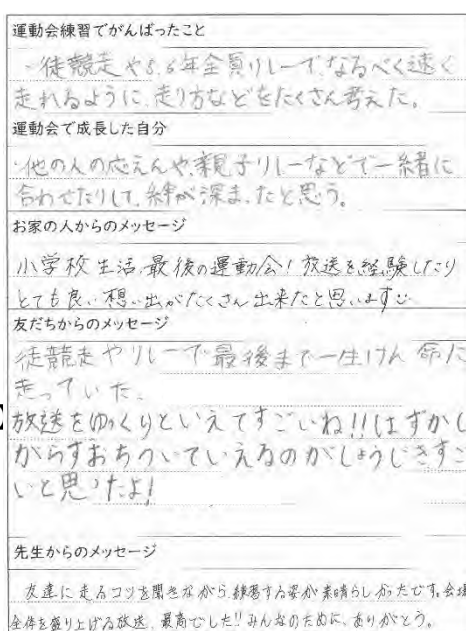 運動会練習でがんばったこと
・徒競走や5.6年全員リレーで、なるべく速く
走れるように、走り方などをたくさん考えた。
運動会で成長した自分
・他の人の応えんや、親子リレーなどで一緒に
合わせたりして、絆が深まったと思う。
お家の人からのメッセージ
小学校生活最後の運動会!放送を経験したり
とても良い想い出がたくさん出来たと思います
友だちからのメッセージ
徒競走やリレーで最後まで一生けん命に
走っていた。
放送をゆっくりといえてすごいね!!はずかし
からずおちついていえるのがしょうじきすご
いと思ったよ!
先生からのメッセージ
友達に走るコツを聞きながら練習する姿が素晴らしかったです。会場
全体を盛り上げる放送、最高でした!!みんなのために、ありがとう。